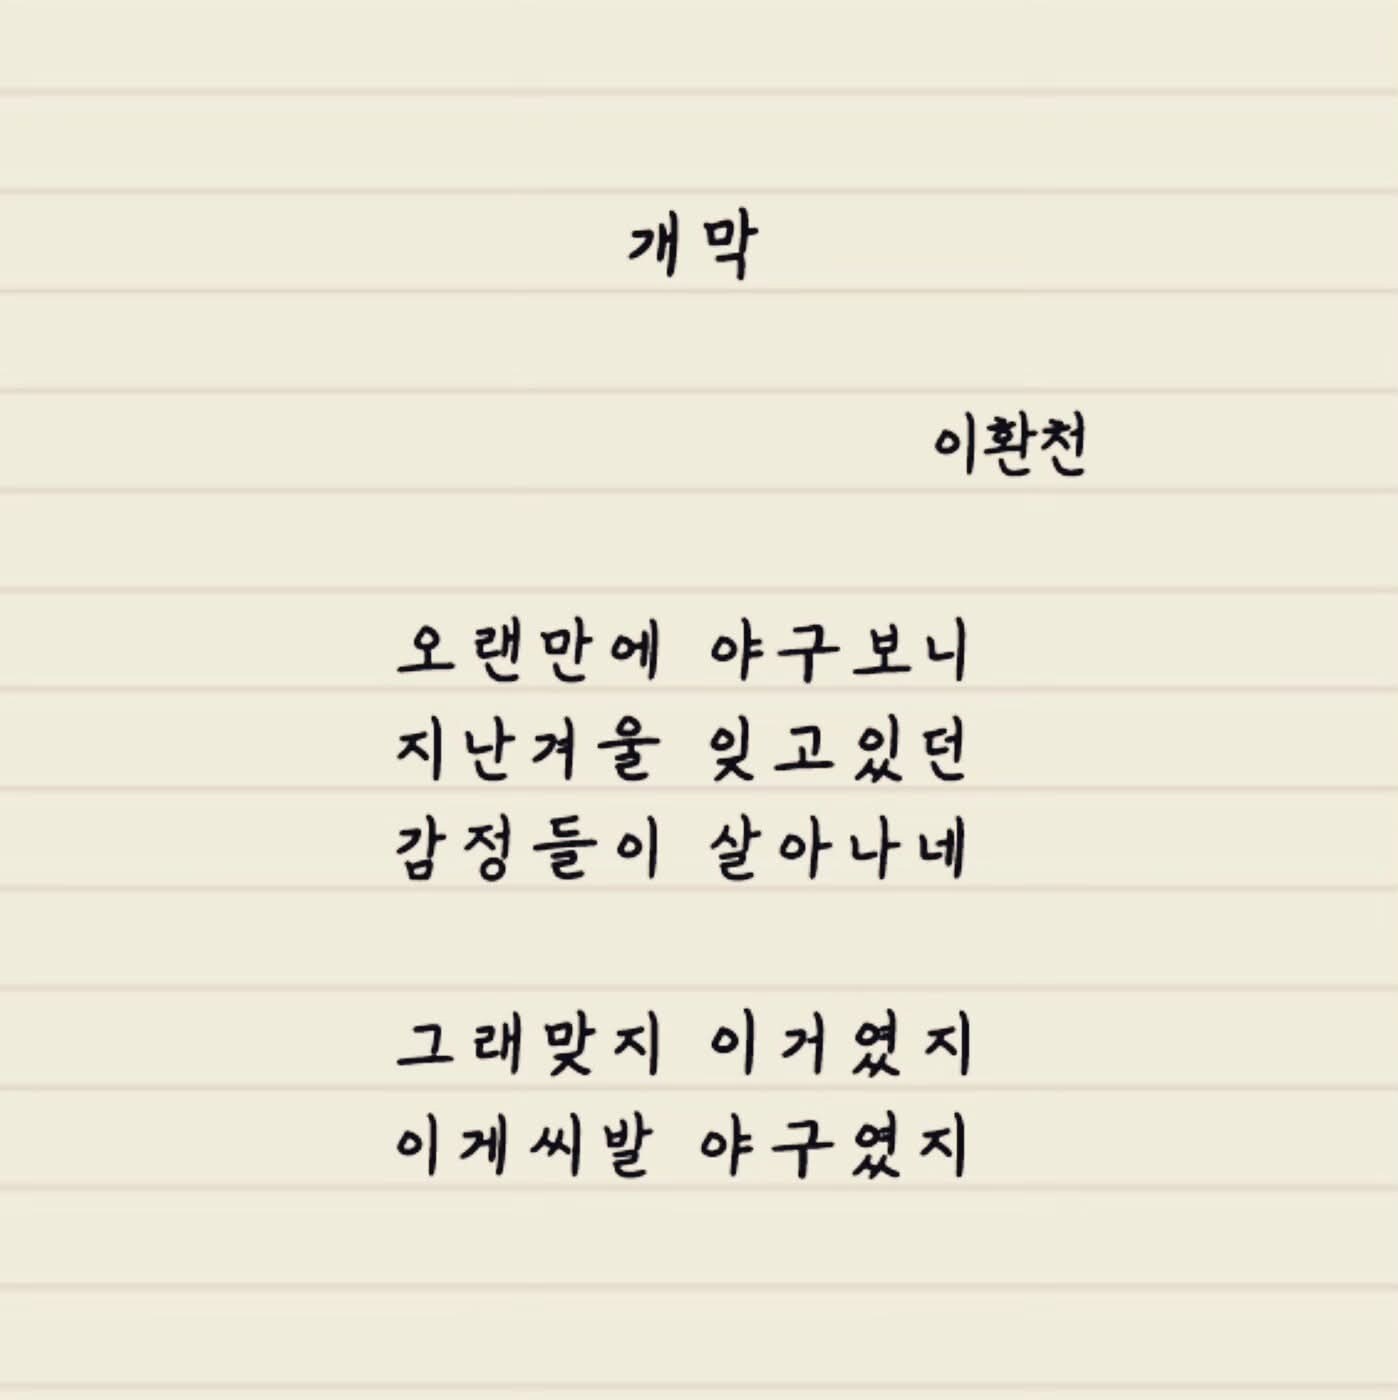 개막
이환천
오랜만에 야구보니
지난겨울 잊고있던
감정들이 살아나네
그래맞지 이거였지
이게씨발 야구였지